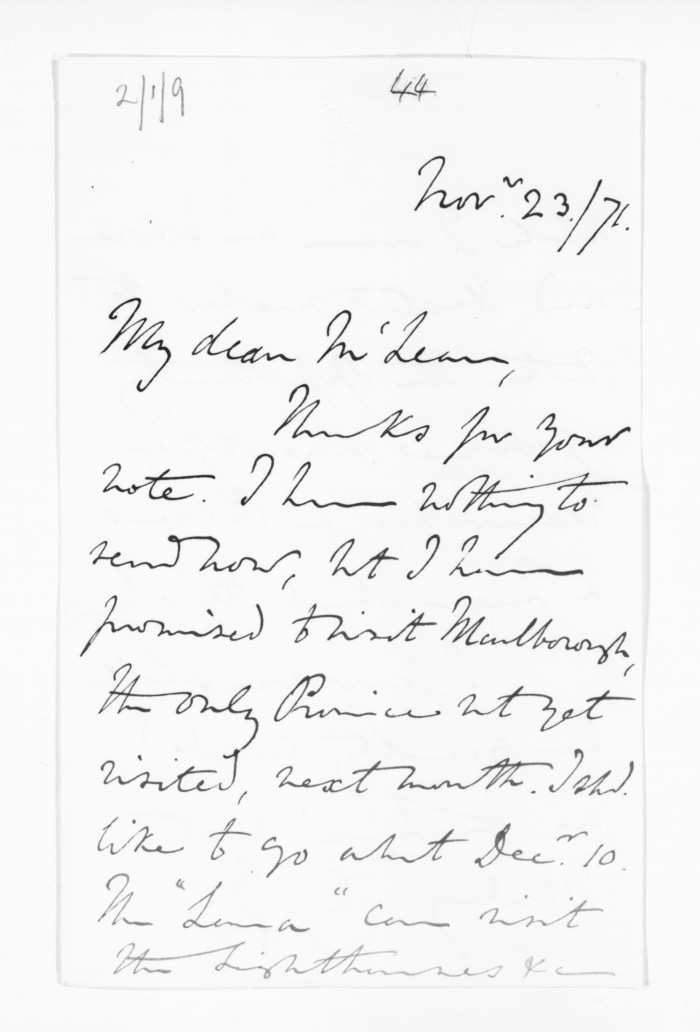 2/1/9
44
Novr. 23./71.
My dear McLean,
Thanks for your
note. I have nothing to
send now, but I have
promised to visit Marlborough,
the only Province not yet
visited, next month. I shd.
like to go about Decr. 10.
The "Luna" can visit
the Lighthouses &c